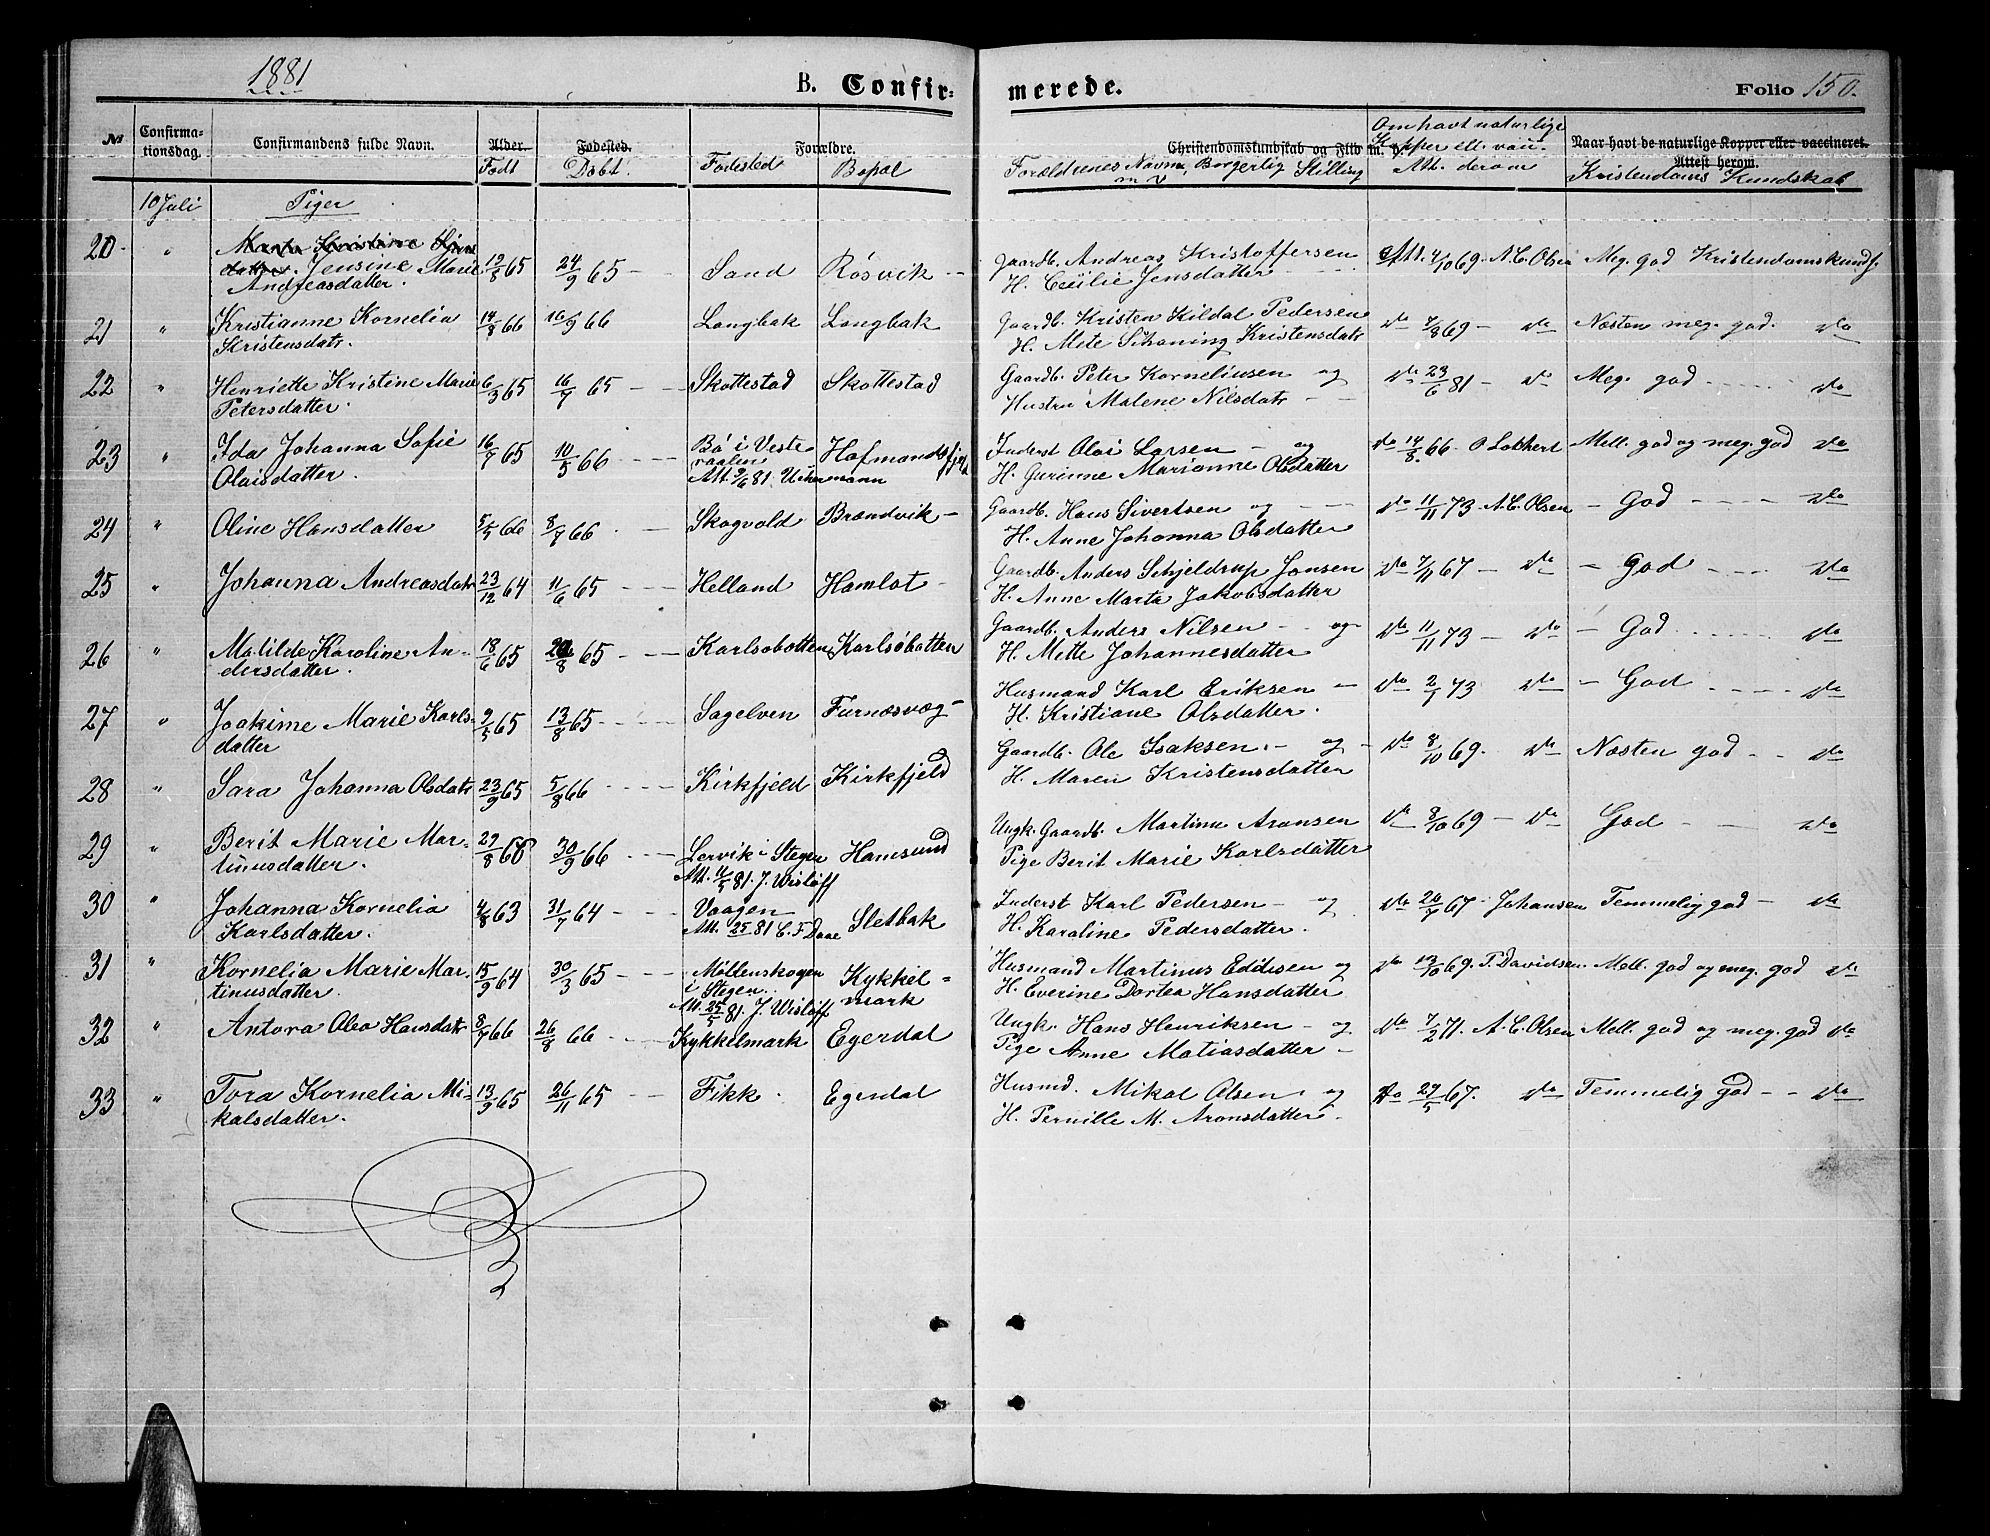 1881
B. Confir=
merede.
Folio 150.
№
Confirma-
tionsdag.
Confirmandens fulde Navn.
Alder.
Født
Fødested.
Døbt.
Forældre.
Fødested
Bopæl
Christendomskundskab og Flid m. v.
Forældrenes Navne, Borgerlig Stilling
m v
Om havt naturlige
Kopper ell. vacc.
Att. derom
Naar havt de naturlige Kopper eller vaccineret.
Attest herom.
Kristendoms Kundskab
10 Juli Piger
20 " Marta Kristine
datter. Jensine Marie
Andreasdatter. 12/8 65 24/9 65 Sand Røsvik Gaardb. Andreas Kristoffersen Att. 4/10 69. A. C. Olsen Meg. god Kristendomskundsk.
H. Cecilie Jensdatter
21 " Kristianne Kornelia 14/8 66 16/9 66 Langbak Langbak Gaardb. Kristen Kildal Pedersen do 7/8 69 - do Næsten meg. god. do
Kristensdatr. H. Mete Schøning Kristensdatr
22 " Henriette Kristine Marie 6/3 65 16/7 65 Skottestad Skottestad Gaardb. Peter Korneliusen og do 23/6 81 - do Meg. god do
Petersdatter. Hustru Malene Nilsdatr
23 " Ida Johanna Sofie 16/7 65 10/5 66 Bø i Veste- Hofmandsfjeld Inderst Olai Larsen - og do 14/8 66. O Lokkert Mell. god og meg. god do
Olaisdatter. raalen H. Gurinne Marianne Olsdatter
Att. 9/6 81. Uchermann
24 " Oline Hansdatter 5/5 66 8/7 66 Skogvold Brændvik Gaardb. Hans Sivertsen og do 11/11 73 - A. C. Olsen - God do
H. Anne Johanna Olsdatter
25 " Johanna Andreasdatr 23/12 64 11/6 65 Helland Hamlot Gaardb. Anders Schjeldrup Jensen do 7/11 67 - do - God do
H. Anne Marta Jakobsdatter
26 " Matilde Karoline An- 18/6 65 /8 65 Karlsøbotten Karlsøbotten Gaardb. Anders Nilsen - og do 11/11 73 - do - God do
dersdatter. H. Mette Johannesdatter
27 " Joakime Marie Karls- 9/5 65 13/8 65 Sagelven Furnæsvæg Husmand Karl Eriksen do 2/7 73 do - God do
datter H. Kristiane Olsdatter.
28 " Sara Johanna Olsdatr 23/9 65 5/8 66 Kirkfjeld Kirkfjeld Gaardb. Ole Isaksen. - og do 8/10 69. do Næsten god do
H. Maren Kristensdatter
29 " Berit Marie Mar- 27/8 66 30/9 66 Lervik i Stegen Hamsund Ungk. Gaardb. Martinu Aronsen do 8/10 69 - do God do
tinusdatter. Att. 11/5 81. J. Wisløff Pige Berit Marie Karlsdatter
30 " Johanna Kornelia 4/8 63 31/7 64 Vaagen Sletbak Inderst Karl Pedersen og do 20/7 67 - Johansen Temmelig god - do
Karlsdatter. Att. 25/5 81 C. F. Daae H. Karoline Pedersdatter.
31 " Kornelia Marie Mar- 15/9 64 30/3 65 Møllenskogen Kykkel= Husmand Martinus Eddisen og do 13/10 69. P. Davidsen Mell. god og meg. god do
tinusdatter. i Stegen. mark H. Everine Dortea Hansdatter
Att. 25/5 81. J. Wisløff
32 " Antora Olea Hansdatr 8/7 66 26/8 66 Kykkelmark Egerdal Ungk. Hans Henriksen - og do 7/2 71. A. C. Olsen Mell. god og meg. god do
Pige Anne Matiasdatter
33 " Tora Kornelia Mi- 13/9 65 26/11 65 Fikk Egerdal Husmd. Mikal Olsen og do 27/5 67. do Temmelig god - - do
kalsdatter. H. Pernille M. Aronsdatter